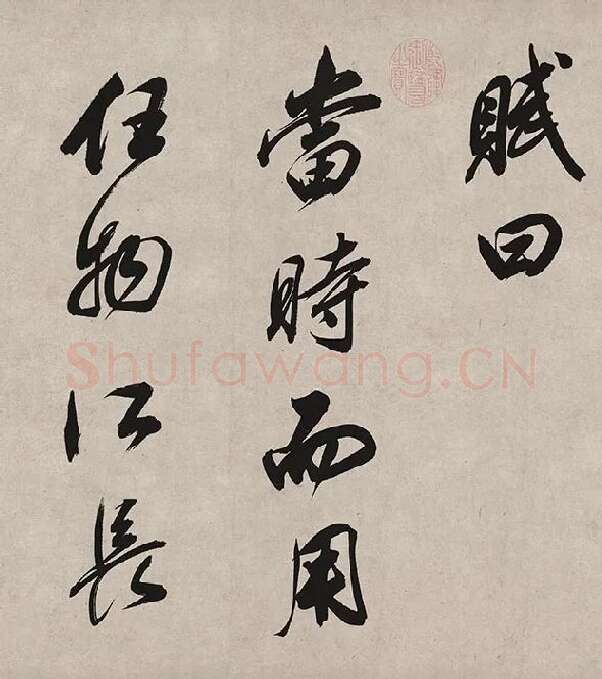 賦曰
當時而用
任物所長
Shufawang.CN